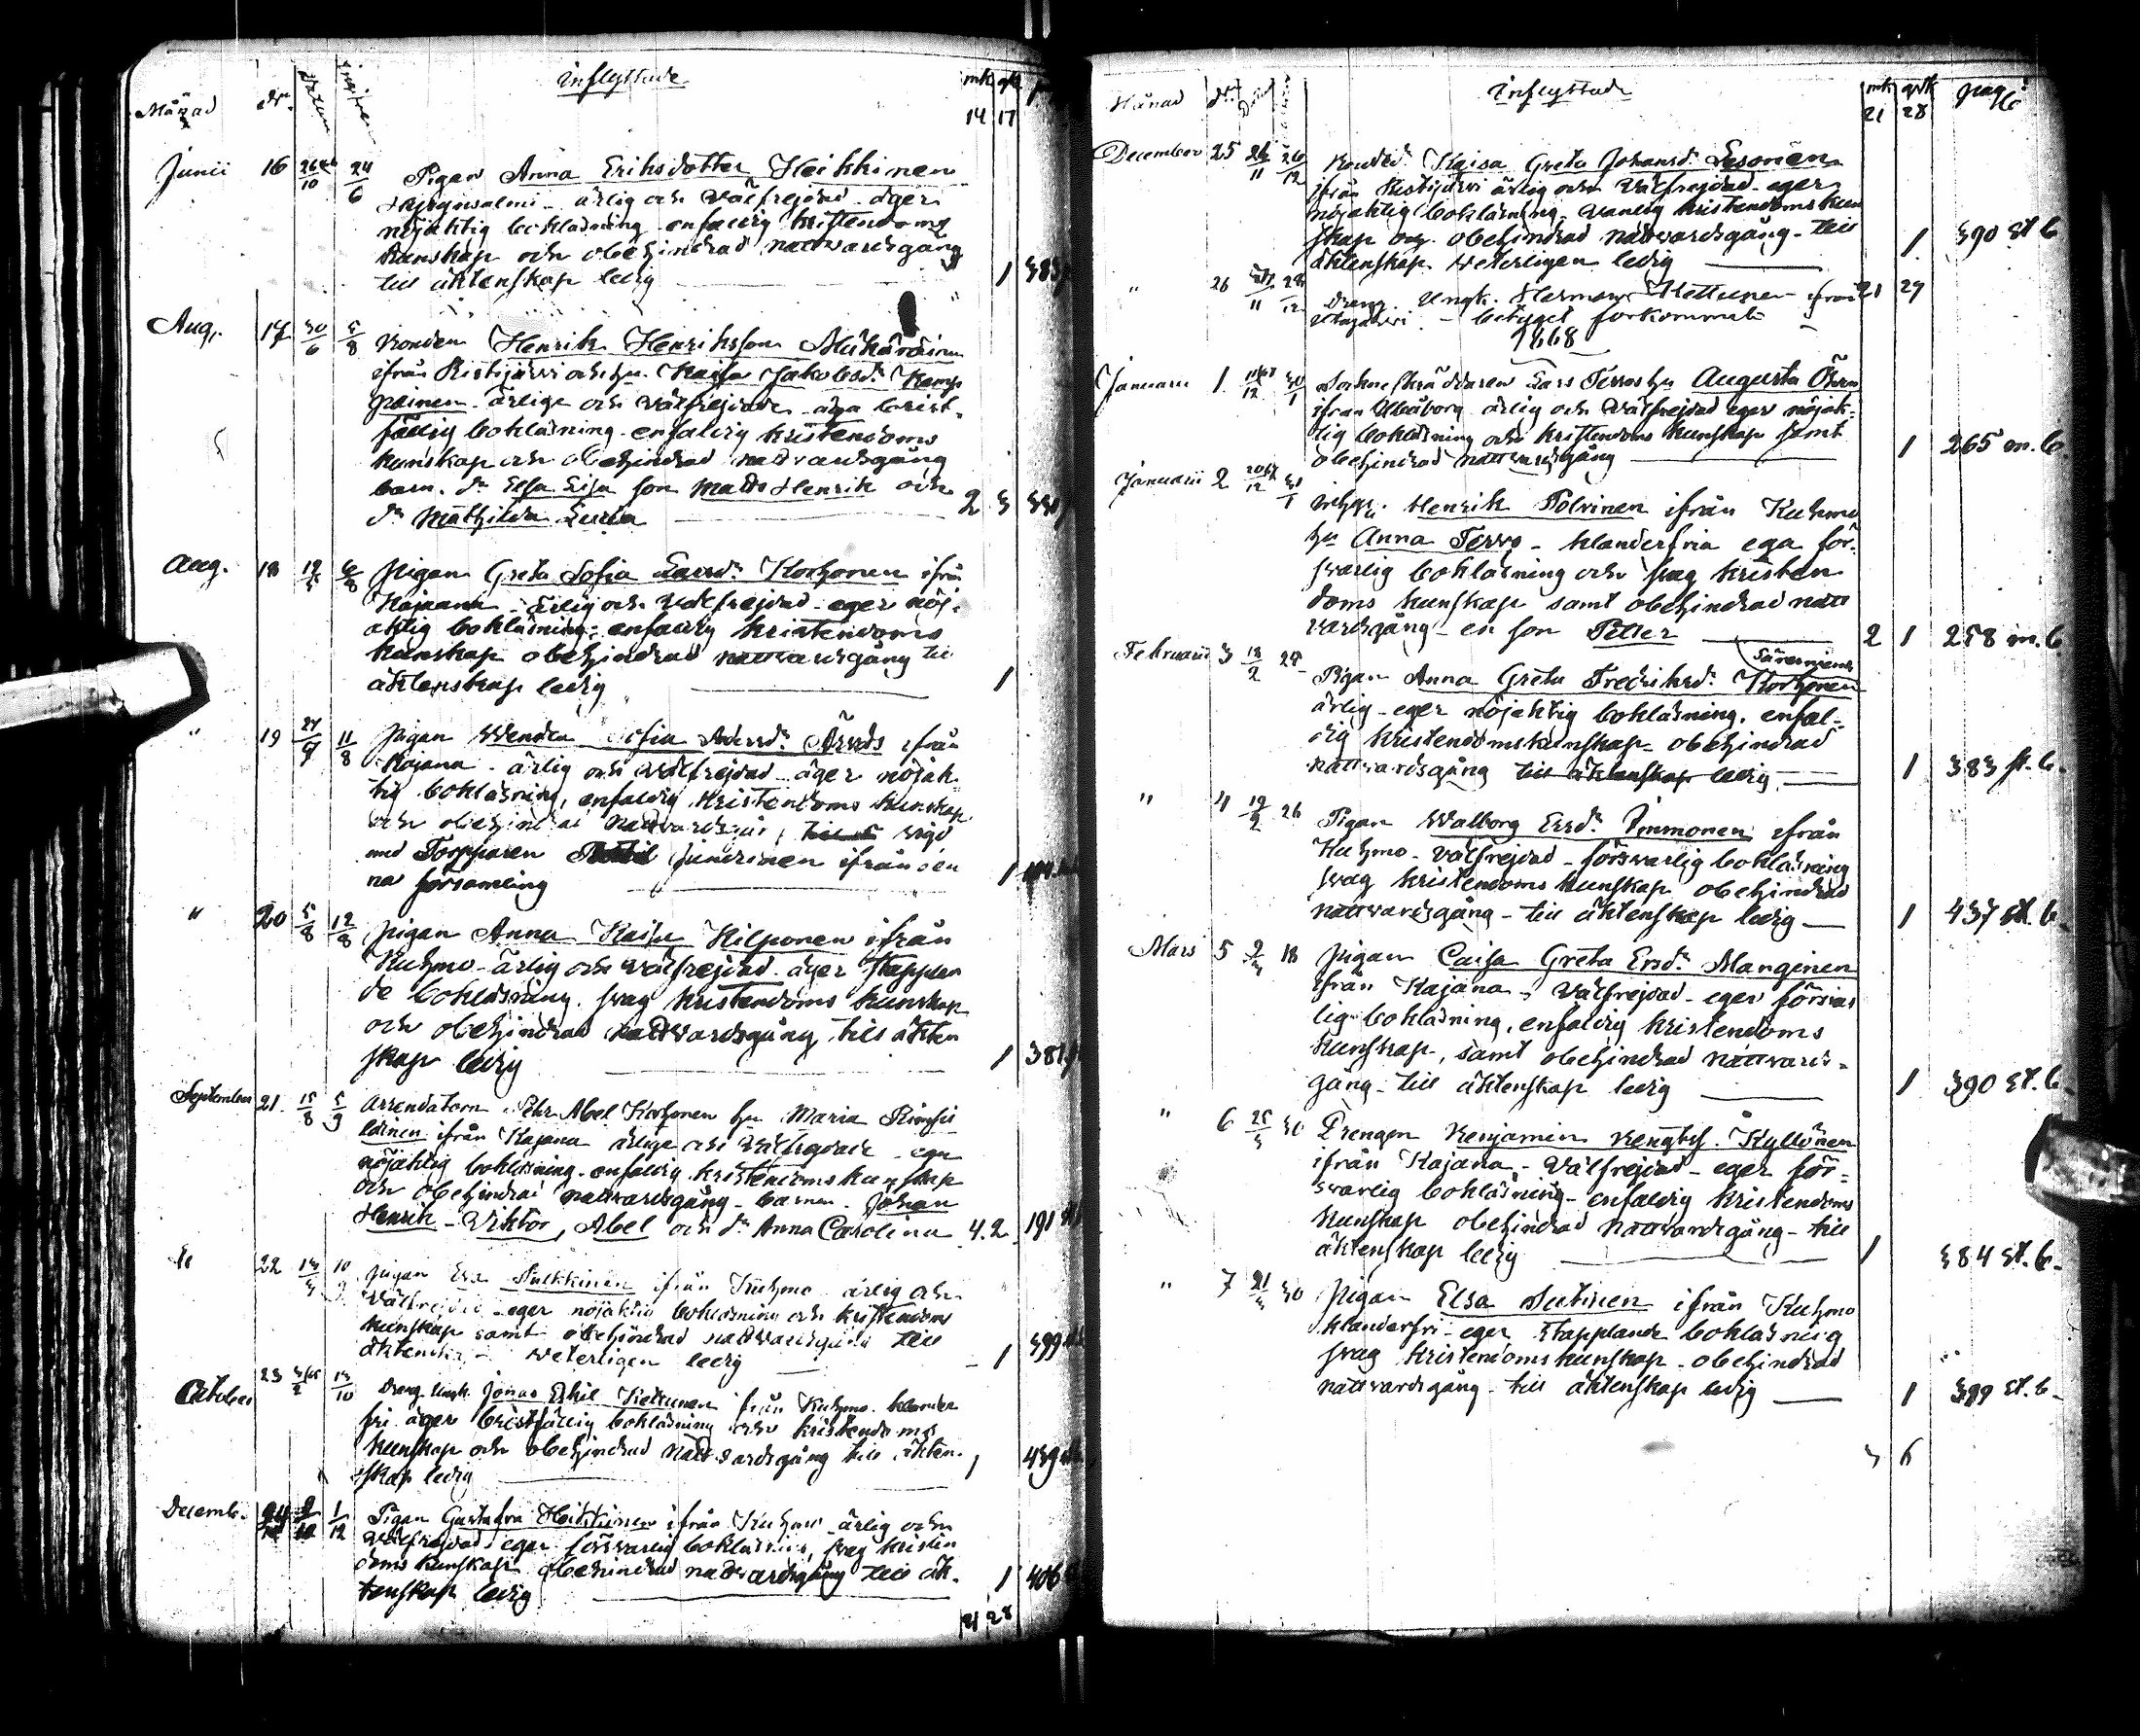 Månad Nr. Datum inflyttade mk qk
14 17
Junii 16 24/6 Pigan Anna Eriksdotter Heikkinen
ärlig och välfrejdad äger
nöjaktig bokläsning enfaldig kristendoms
kunskap och obehindrad nattvardsgång
till äktenskap ledig 1 383
Aug. 17 30/6 5/8 Bonden Henrik Henriksson Mikäräinen
ifrån Ristijärvi och hu. Kaisa Jakobsdr Kemp
painen ärlige och välfrejdade äga brist-
fällig bokläsning enfaldig kristendoms
kunskap och obehindrad nattvardsgång
barn. dr Elsa Lisa son Matts Henrik och
dr Mathilda Lovisa 2 3
Aug. 18 19/5 6/8 Pigan Greta Sofia Larsdr Korhonen ifrån
Kajaana ärlig och välfrejdad eger nöj-
aktig bokläsning, enfaldig kristendoms
kunskap obehindrad nattvardsgång till
äktenskap ledig 1
" 19 11/8 Pigan Wendla Sofia Andersdr Ärvds ifrån
Kajana ärlig och välfrejdad äger nöjak
tig bokläsning, enfaldig kristendoms kunskap
och obehindrad nattvardsgång, vigd
med Torpparen Juntinen ifrån den
na församling 1
" 20 5/8 12/8 pigan Anna Kaisa Kilponen ifrån
Kuhmo ärlig och välfrejdad äger stappen
de bokläsning, svag kristendoms kunskap
och obehindrad nattvardsgång, till äkten
skap ledig 1 381
September 21. 15/8 5/9 Arrendatorn Pehr Abel Korhonen hu Maria Rimpi
läinen ifrån Kajana ärlige och välfrejdade ega
nöjaktig bokläsning enfaldig kristendoms kunskap
och obehindrad nattvardsgång barnen Johan
Henrik - Viktor, Abel och dr Anna Carolina 4. 2 191
22 pigan Eva Pulkkinen ifrån Kuhmo ärlig och
välfrejdad eger nöjaktig bokläsning och kristendoms
kunskap samt obehindrad nattvardsgång till
äktenskap veterligen ledig 1 399
October 23 13/10 Dreng. Ungk. Jonas Eskil Kettunen från Kuhmo klander
fri äger bristfällig bokläsning och kristendoms
kunskap och obehindrad nattvardsgång till äkten-
skap ledig 1 439
Decemb. 24 1/12 Pigan Gustafva Heikkinen ifrån Kuhmo ärlig och
välfrejdad eger försvarlig bokläsning, svag kristen
doms kunskap obehindrad nattvardsgång till äk-
tenskap ledig 1 406
21 28
Månad Nr inflyttade mk qvk pag
21 28
December 25 26/11 26/12 Bonded. Kaisa Greta Johansdr Lesonen
från Ristijärvi ärlig och välfrejdad eger
nöjaktig bokläsning, vanlig kristendoms kun
skap och obehindrad nattvardsgång till
äktenskap veterligen ledig 1 390 st b
" 26 Dreng. Ungk. Herman Kettunen ifrån 21 29
betyget förkommit
1868
Januarii 1. Sockneskräddaren Lars Tervos hu Augusta Öhrn
ifrån Uleåborg ärlig och välfrejdad eger nöjak-
tig bokläsning och kristendoms kunskap samt
obehindrad nattvardsgång 1 265 m. b.
Januarii 2 Henrik Polvinen ifrån Kuhmo
hu Anna Tervo - klanderfria ega för-
svarlig bokläsning och svag kristen
doms kunskap samt obehindrad natt
vardsgång - en son Petter 2 1 258 m. b
Februarii 3 18/2 Pigan Anna Greta Fredriksdr Korhonen
ärlig - eger nöjaktig bokläsning, enfal-
dig kristendomskunskap - obehindrad
nattvardsgång till äktenskap ledig 1 383 st. b.
" 4 19/2 26 Pigan Walborg Ersdr Pinmonen ifrån
Kuhmo - välfrejdad - försvarlig bokläsning
svag kristendoms kunskap obehindrad
nattvardsgång - till äktenskap ledig 1 437 st. b.
Mars 5 18 Pigan Caisa Greta Ersdr Manginen
ifrån Kajana - välfrejdad - eger försvar
lig bokläsning, enfaldig kristendoms
kunskap, samt obehindrad nattvards-
gång - till äktenskap ledig 1 390 st. b.
" 6 25/3 30 Drengen Benjamin Bengtss. Kyllönen
ifrån Kajana - välfrejdad - eger för-
svarlig bokläsning - enfaldig kristendoms
kunskap obehindrad nattvardsgång - till
äktenskap ledig 1 384 st. b.
" 7 21/3 30 Pigan Elsa Sutinen ifrån Kuhmo
klanderfri - eger stapplande bokläsning
svag kristendoms kunskap - obehindrad
nattvardsgång - till äktenskap ledig 1 399 st. b.
3 6